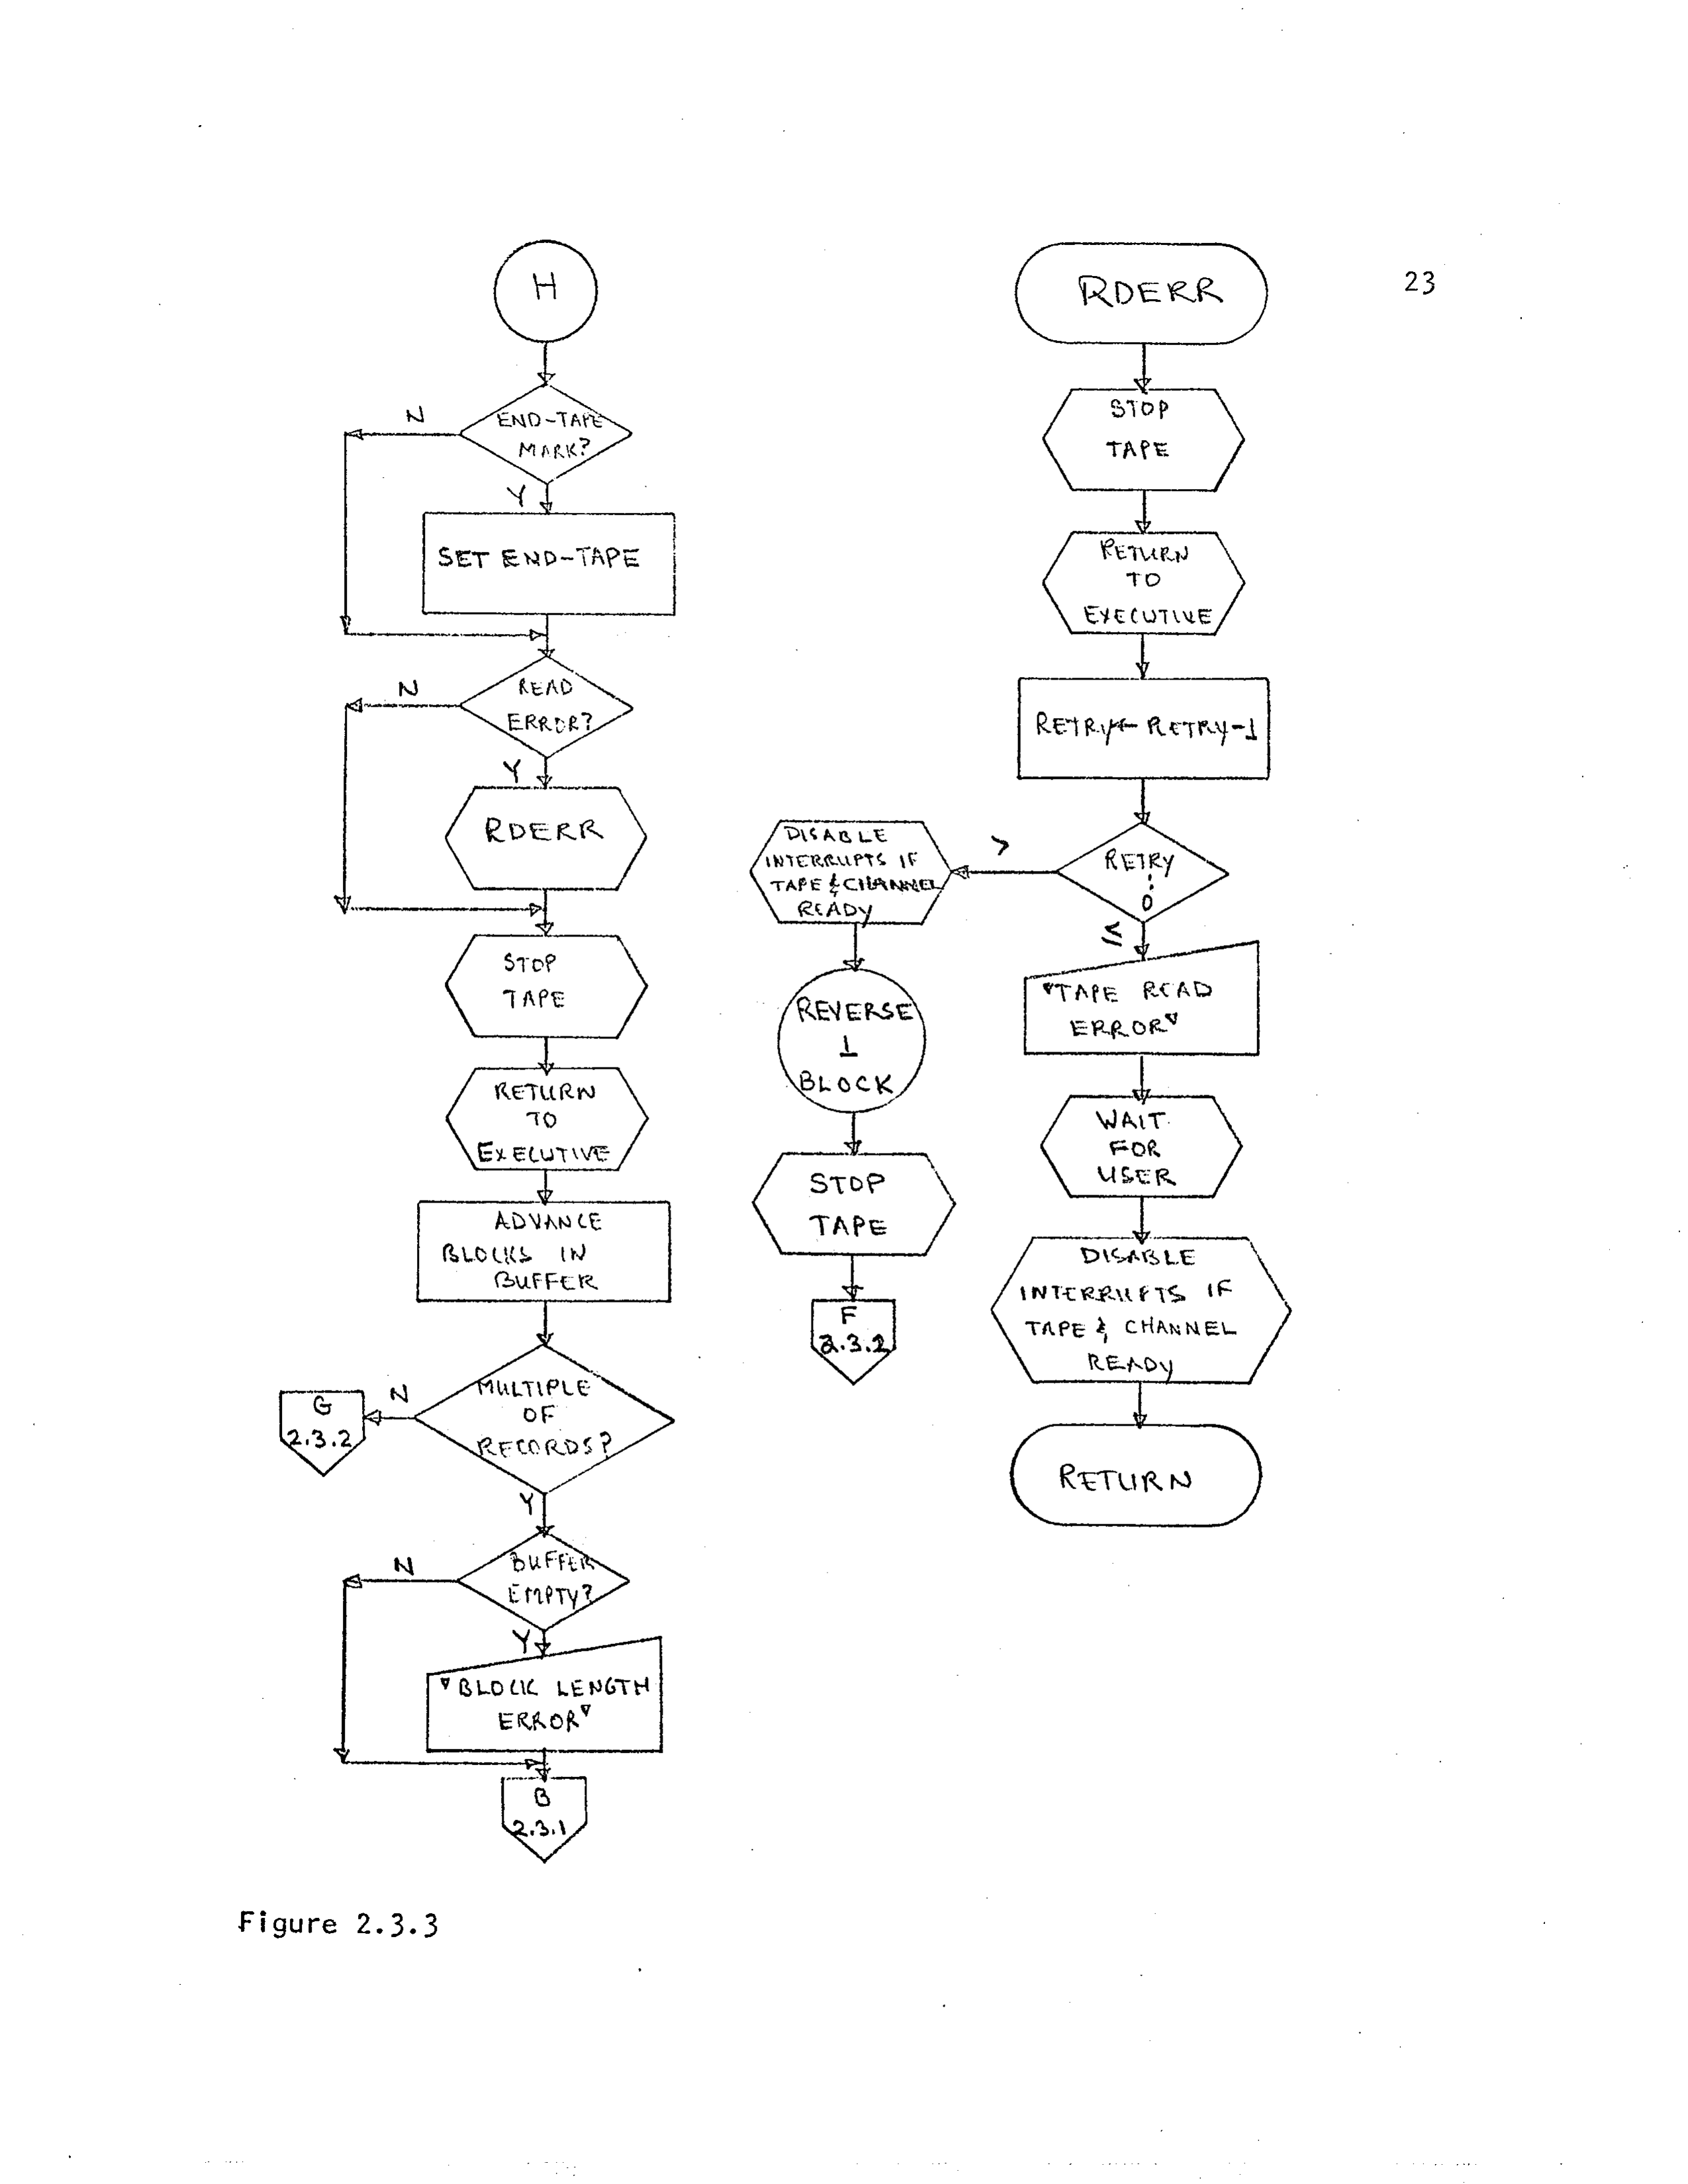 23
H
N
END-TAPE
MARK?
Y
SET END-TAPE
N
READ
ERROR?
Y
RDERR
STOP
TAPE
RETURN
TO
EXECUTIVE
ADVANCE
BLOCKS IN
BUFFER
MULTIPLE
OF
RECORDS?
N
G
2.3.2
Y
BUFFER
EMPTY?
N
Y
"BLOCK LENGTH
ERROR"
B
2.3.1
RDERR
STOP
TAPE
RETURN
TO
EXECUTIVE
RETRY←RETRY-1
RETRY
:
0
>
DISABLE
INTERRUPTS IF
TAPE & CHANNEL
READY
REVERSE
1
BLOCK
STOP
TAPE
F
2.3.2
≤
"TAPE READ
ERROR"
WAIT
FOR
USER
DISABLE
INTERRUPTS IF
TAPE & CHANNEL
READY
RETURN
Figure 2.3.3